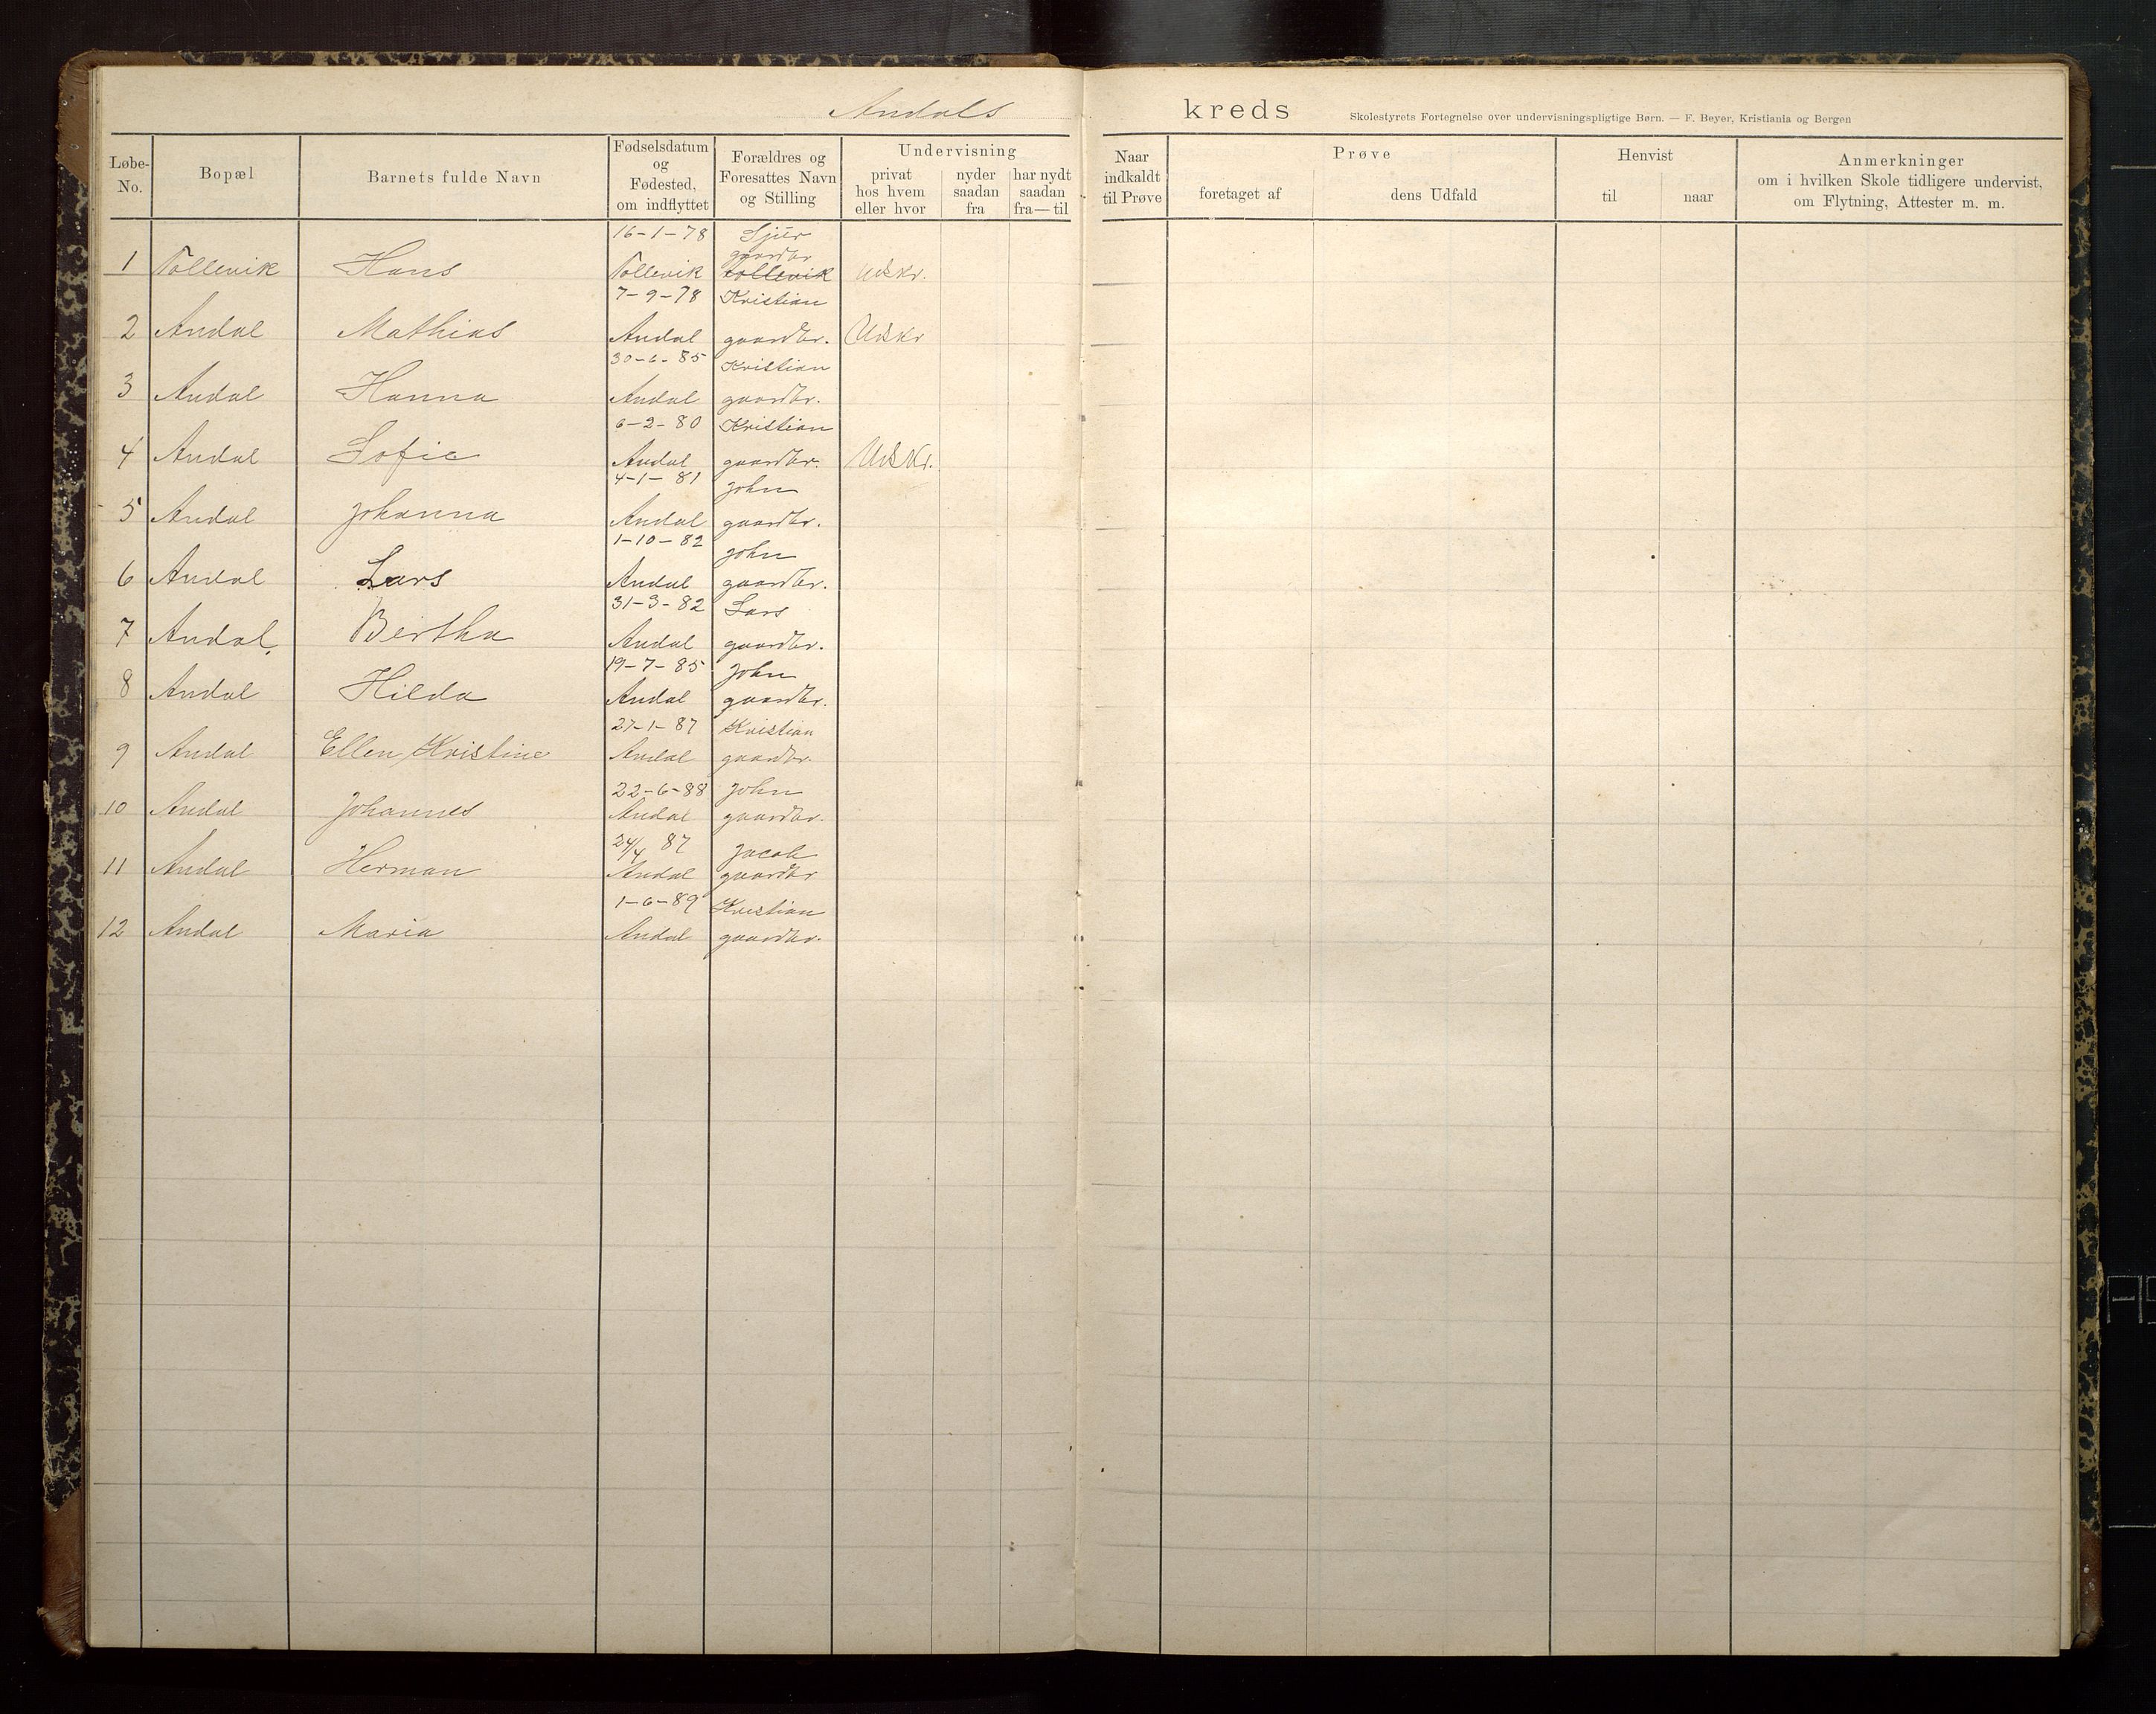 Andals kreds Skolestyrets Fortegnelse over undervisningspligtige Børn. — F. Beyer, Kristiania og Bergen
Løbe-No. Bopæl Barnets fulde Navn Fødselsdatum og Fødested, om indflyttet Forældres og Foresattes Navn og Stilling Undervisning privat hos hvem eller hvor nyder saadan fra har nydt saadan fra — til Naar indkaldt til Prøve Prøve foretaget af dens Udfald Henvist til naar Anmerkninger om i hvilken Skole tidligere undervist, om Flytning, Attester m. m.
16-1-78 Sjur
gaardbr
1 Tollevik Hans Tollevik Tollevik Udskr.
7-9-78 Kristian
2 Andal Mathias Andal gaardbr. Udskr
30-6-85 Kristian
3 Andal Hanna Andal gaardbr.
6-2-80 Kristian
4 Andal Sofie Andal gaardbr. Udskr.
4-1-81 John
5 Andal Johanna Andal gaardbr.
1-10-82 John
6 Andal Lars Andal gaardbr.
31-3-82 Lars
7 Andal. Bertha Andal gaardbr.
19-7-85 John
8 Andal Hilda Andal gaardbr.
27-1-87 Kristian
9 Andal Ellen Kristine Andal gaardbr.
22-6-88 John
10 Andal Johannes Andal gaardbr.
24/4 87 Jacob
11 Andal Herman Andal gaardbr
1-6-89 Kristian
12 Andal Maria Andal gaardbr.